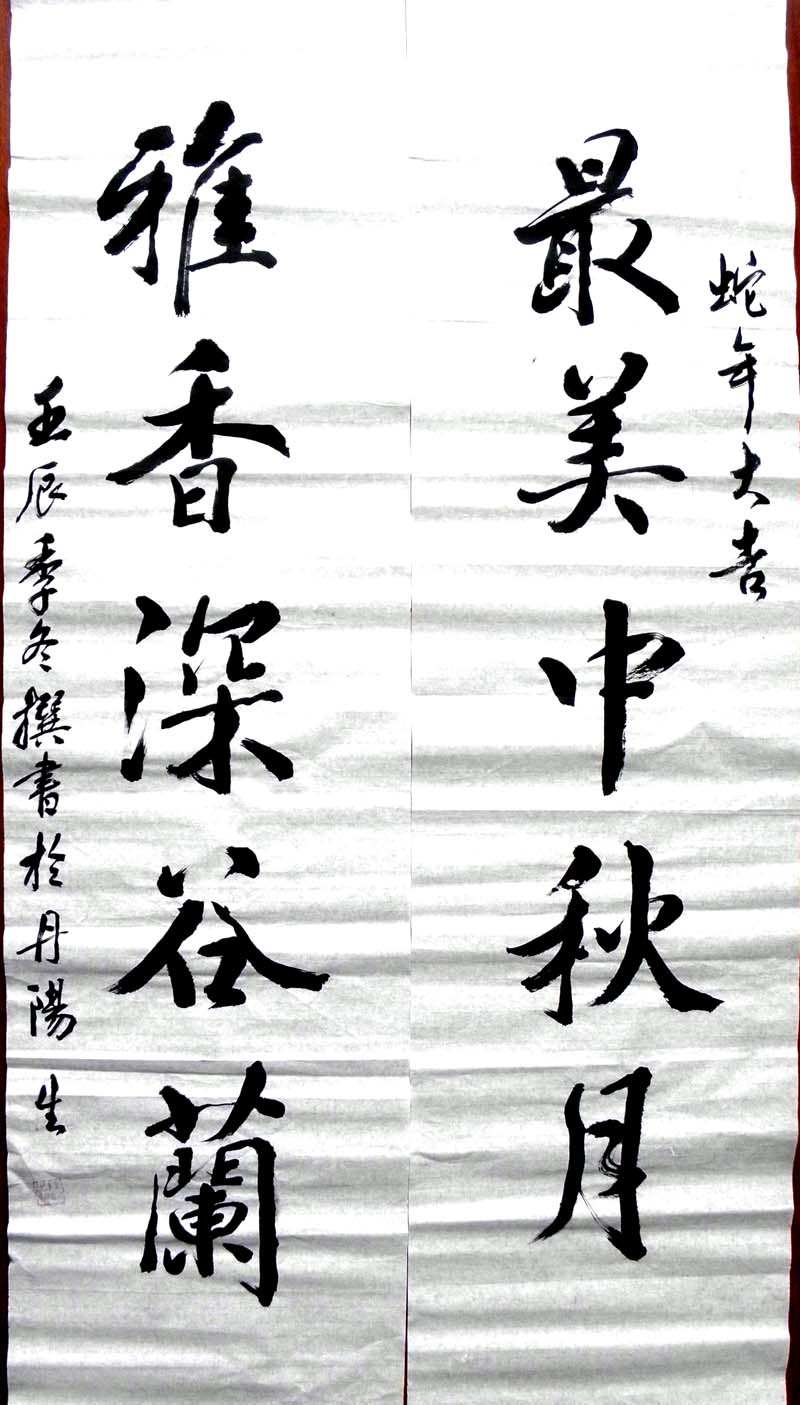 蛇年大吉
最美中秋月
雅香深谷蘭
壬辰季冬撰書於丹陽 生